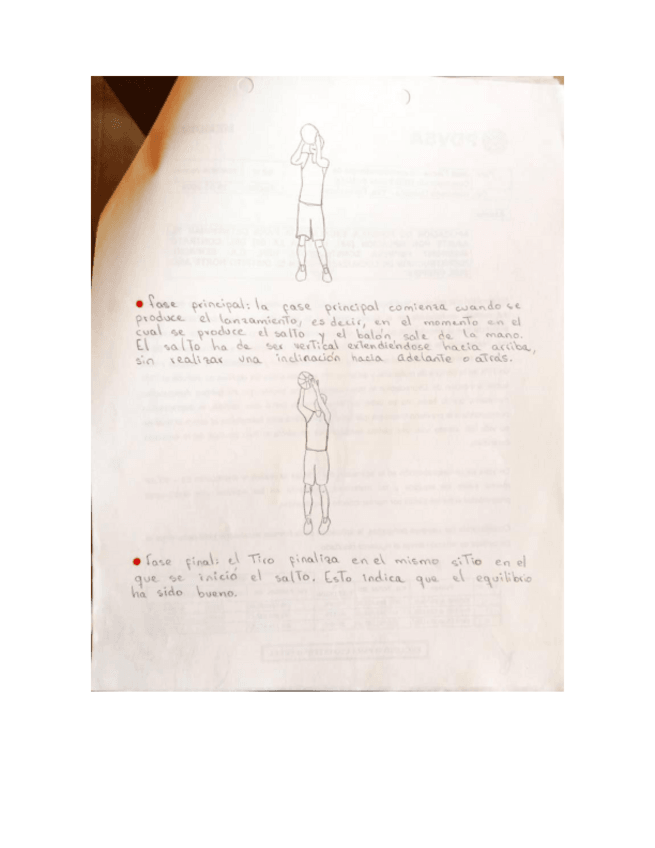 Fase principal: la fase principal comienza cuando se
produce el lanzamiento, es decir, en el momento en el
cual se produce el salto y el balón sale de la mano.
El salto ha de ser vertical extendiéndose hacia arriba,
sin realizar una inclinación hacia adelante o atrás.
Fase final: el Tiro finaliza en el mismo sitio en el
que se inició el salto. Esto indica que el equilibrio
ha sido bueno.